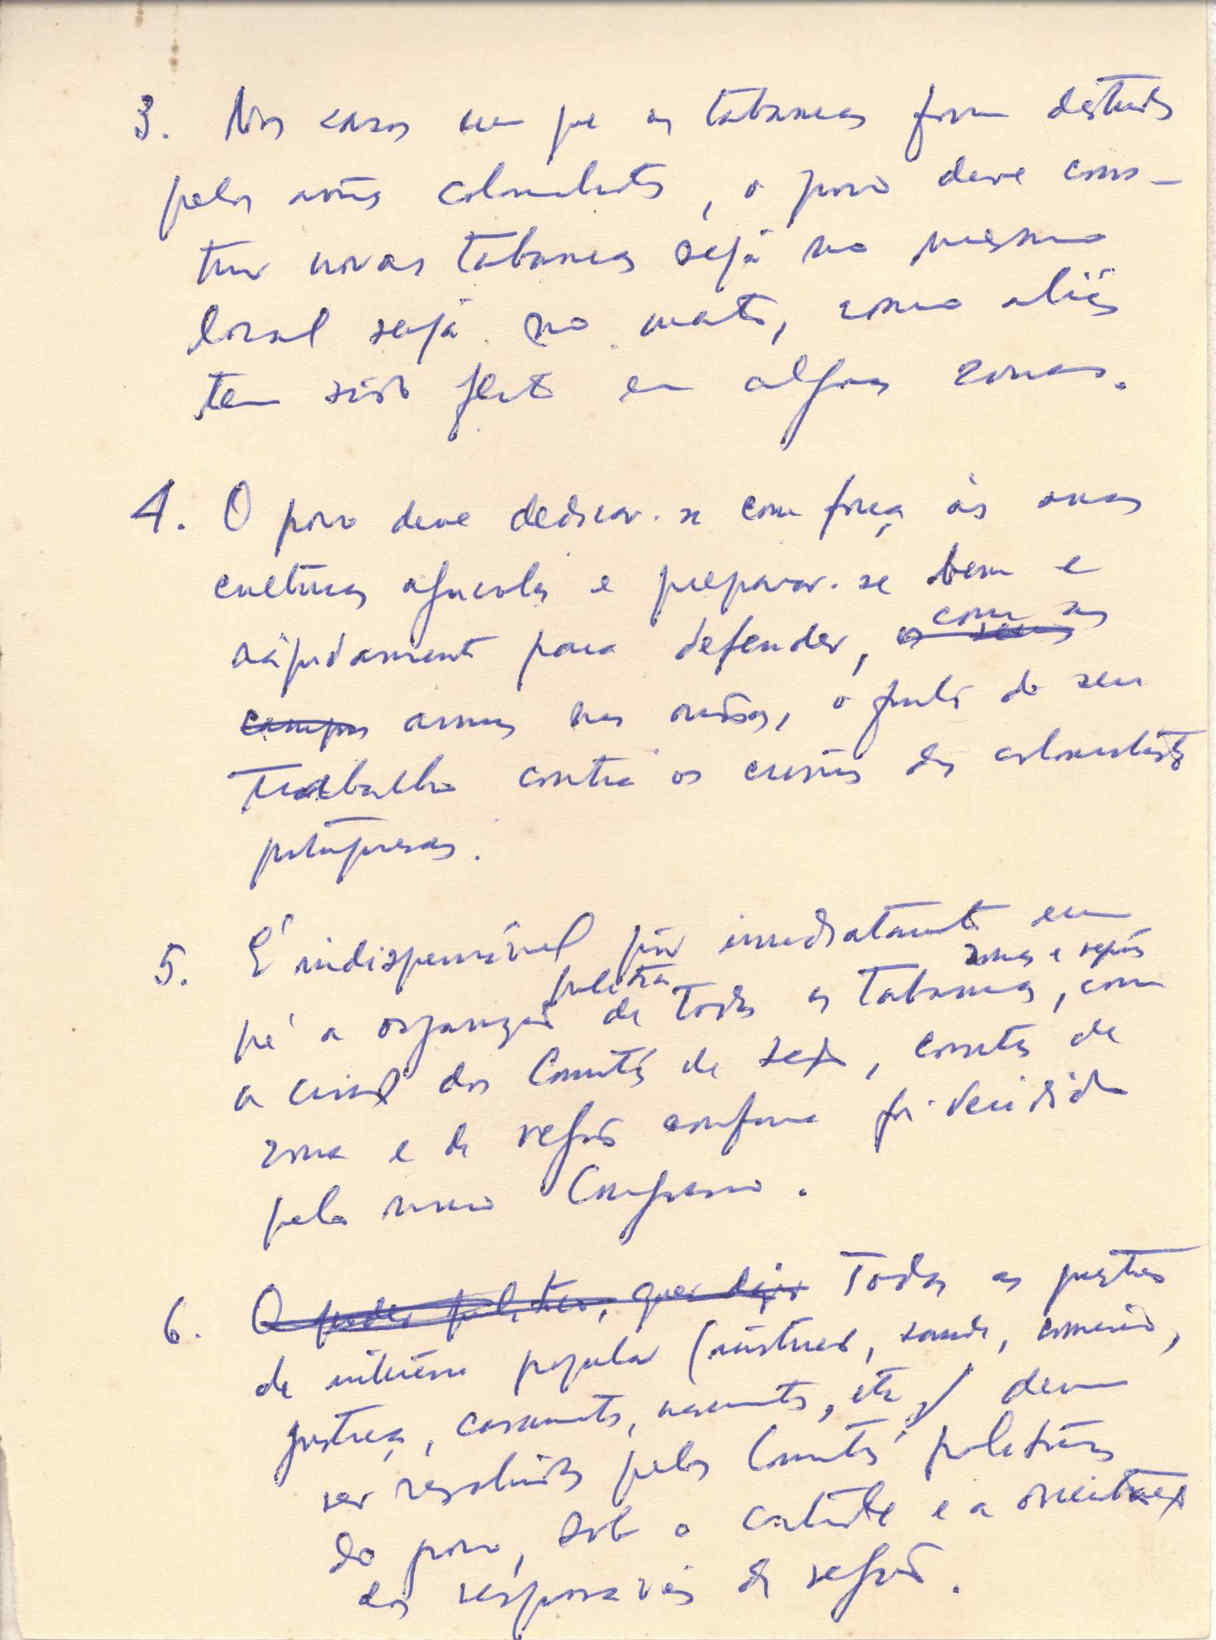 3. Nos casos em que as tabancas foram destruidas
pelos aviões colonialistas, o povo deve cons-
truir novas tabancas seja no mesmo
local seja no mato, como aliás
tem sido feito em algumas zonas.
4. O povo deve dedicar-se com força às suas
culturas agricolas e preparar-se bem e
rápidamente para defender, os seus com as
campos armas nas mãos, o fruto do seu
trabalho contra os crimes dos colonialistas
portugueses.
5. É indispensável pôr imediatamente em
pé a organização politica de todas as tabancas, zonas e regiões, com
a criação dos Comités de secção, comités de
zona e de região conforme foi decidido
pelo nosso Congresso.
6. O poder politico, quer dizer Todas as questões
de interesse popular (instrução, saude, comércio,
justiça, casamentos, nascimentos, etc.) devem
ser resolvidas pelos Comités politicos
do povo, sob o controle e a orientação
dos responsaveis da região.